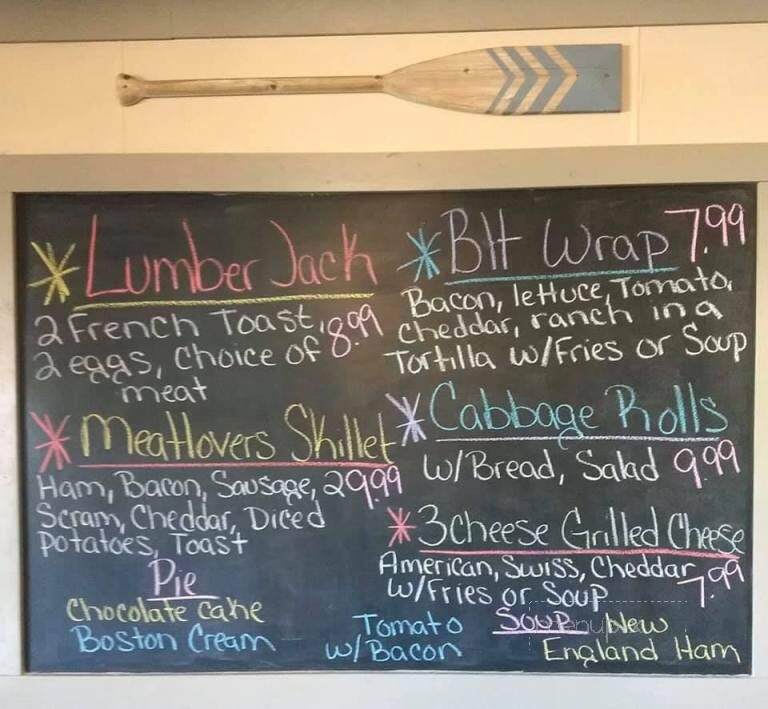 * Lumber Jack
2 French Toast, 8.99
2 eggs, Choice of
meat
* Meatlovers Skillet
Ham, Bacon, Sausage, 2 9.99
Scram, Cheddar, Diced
Potatoes, Toast
Pie
Chocolate Cake
Boston Cream
* Blt Wrap 7.99
Bacon, lettuce, Tomato,
cheddar, ranch in a
Tortilla w/Fries or Soup
* Cabbage Rolls
w/Bread, Salad 9.99
* 3 Cheese Grilled Cheese
American, Swiss, Cheddar 7.99
w/Fries or Soup
Soup
Tomato
w/Bacon
New
England Ham